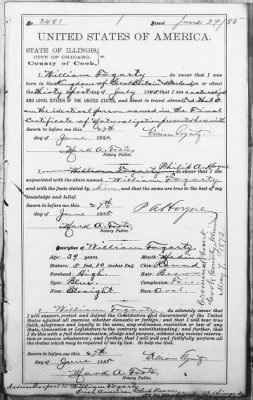 No. 3481 Issued June 29/85
UNITED STATES OF AMERICA.
STATE OF ILLINOIS,
CITY OF CHICAGO,
County of Cook,
I William Fogarty do swear that I was born
in the Kingdom of Great Britain on or about
the Thirty first of July 1845; that I am a naturalized
AND LOYAL CITIZEN OF THE UNITED STATES, and about to travel abroad;
the identical person named in the Final
Certificate of Naturalization presented herewith
Sworn to before me this 27th
day of June 1885
Mark A. Foote
Notary Public.
I Philip A. Hoyne, do swear that I am
acquainted with the above named William Fogarty
and with the facts stated by him, and that the same are true to the best of my
knowledge and belief.
Sworn to before me this 27
day of June 1885
P A Hoyne
Mark A. Foote
Notary Public.
Description of William Fogarty
Age: 39 years
Stature: 5 feet, 10 inches Eng.
Forehead: High
Eyes: Blue
Nose: Straight
Mouth:
Chin: Round
Hair: Brown
Complexion: Fair
Face: Oval
Criminal Court
Cook County Ill
1872
I, William Fogarty do solemnly swear that I
will support, protect and defend the Constitution and Government of the United
States against all enemies, whether domestic or foreign; and that I will bear true
faith, allegiance and loyalty to the same, any ordinance, resolution or law of any
State, Convention or Legislature to the contrary notwithstanding; and further, that
I do this with a full determination, pledge and purpose, without any mental reservation
or evasion whatsoever; and further, that I will well and faithfully perform all
the duties which may be required of me by law. So help me God.
Sworn to before me this 27th
day of June 1885
Mark A. Foote
Notary Public.
William Fogarty